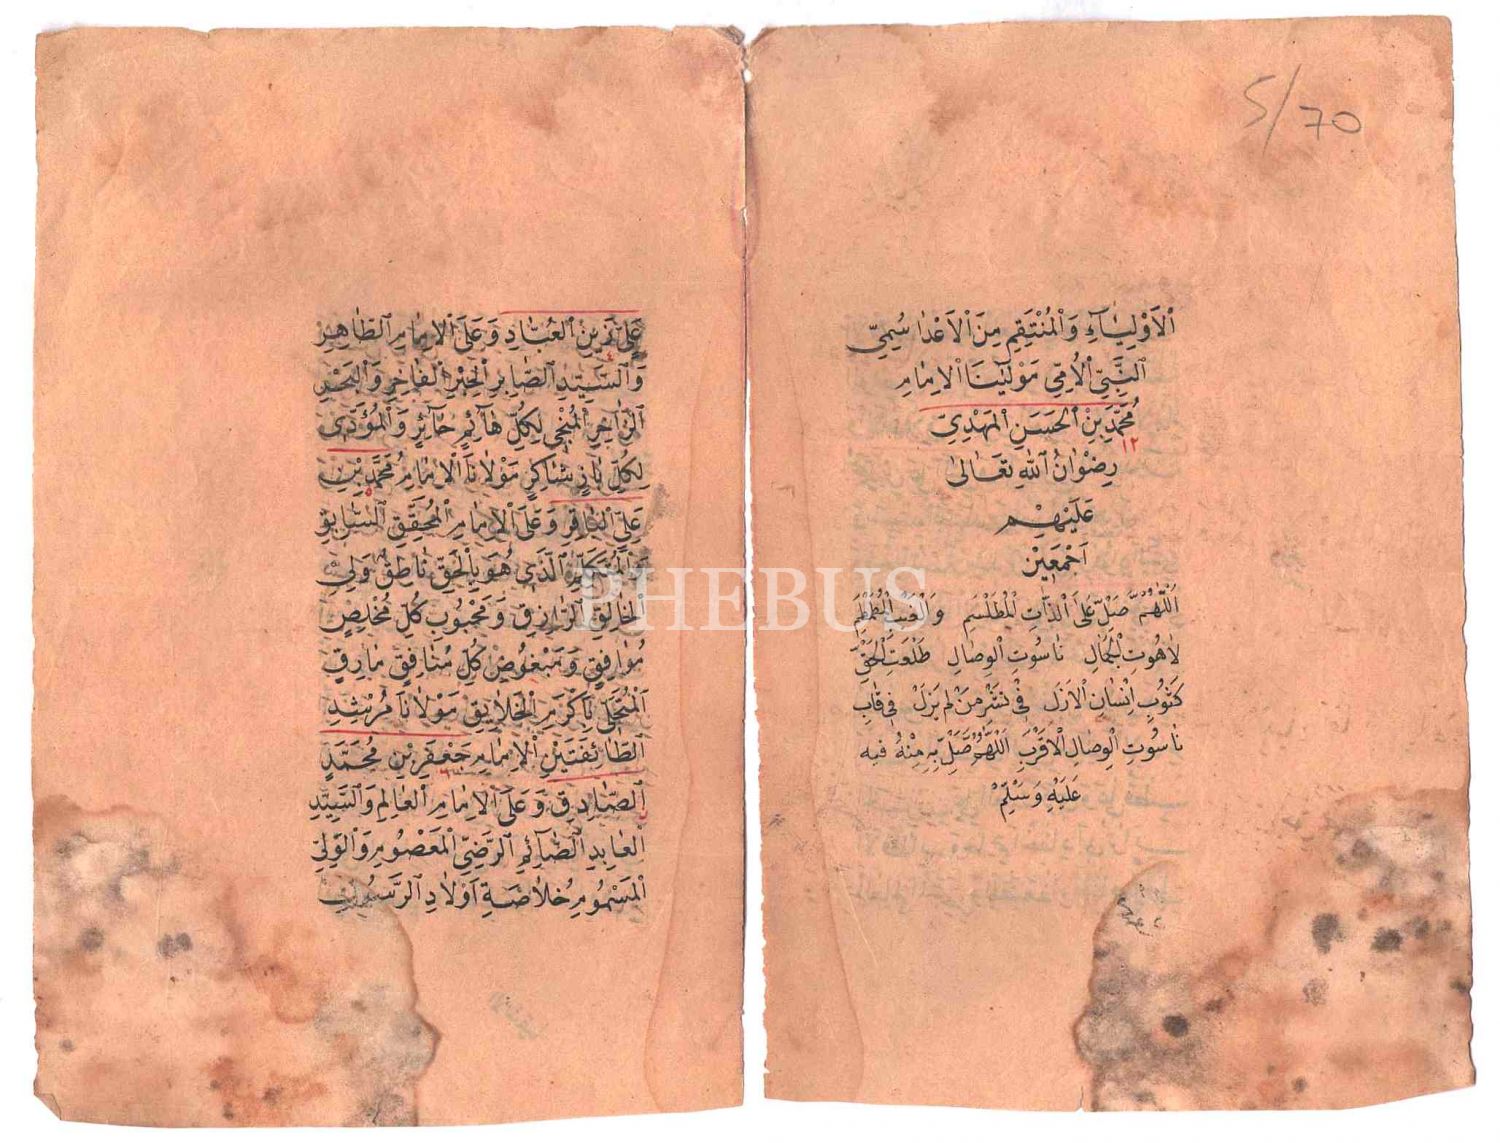 5/70
الْاَوْلِيٰٓاءِ وَالْمُنْتَقِمِ مِنَ الْاَعْدَا سُمِيِّ
النَّبِيِّ الْاُمِّي مَوْلٰينَا الْاِمٰامِ
مُحَمَّدِ بْنِ الْحَسَنِ الْمَهْدِيّ
١٢
رِضْوٰانُ اللهِ تَعَالٰى
عَلَيْهِمْ
اَجْمَعِيْنَ
اَللّٰهُمَّ صَلِّ عَلَى الذَّاتِ الْمُطَلْسَمِ وَالْغَيْبِ الْمُطَمْطَمِ
لاٰهُوتِ الْجَمٰالِ نٰاسُوتِ الْوِصٰالِ طَلْعَتِ الْحَقِّ
كَثَوْبِ اِنْسٰانِ الْاَزَلِ فِي نَشْرِ مَنْ لَمْ يَزَلْ فِي قٰابِ
نٰاسُوتِ الْوِصٰالِ الْاَقْرَبِ اَللّٰهُمَّ صَلِّ بِهِ مِنْهُ فِيهِ
عَلَيْهِ وَسَلِّمْ
عَلِيِّ زَيْنِ الْعُبّٰادِ وَعَلَى الْاِمٰامِ الطّٰاهِرِ
٤
وَالسَّيِّدِ الصّٰابِرِ الْحِبْرِ الْفٰاخِرِ وَالْبَحْرِ
الزّٰاخِرِ الْمُنْجِي لِكُلِّ هٰٓائِمٍ حٰٓائِرٍ وَالْمُؤَدِّى
لِكُلِّ بٰازٍ شٰاكِرٍ مَوْلٰانَا الْاِمٰامِ مُحَمَّدِ بْنِ
٥
عَلِيِّ الْبٰاقِرِ وَعَلَى الْاِمٰامِ الْمُحَقِّقِ السّٰابِقِ
وَالْمُتَكَلِّمِ الَّذِى هُوَ بِالْحَقِّ نٰاطِقٌ وَلِيِّ
الْخٰالِقِ الرّٰازِقِ وَمَحْبُوبِ كُلِّ مُخْلِصٍ
مُوٰافِقٍ وَمَبْغُوضِ كُلِّ مُنٰافِقٍ مٰارِقٍ
الْمُتَحَلِّي بِاَكْرَمِ الْخَلٰايِقِ مَوْلٰانَا مُرْشِدِ
الطّٰائِفَتَيْنِ الْاِمٰامِ جَعْفَرِ بْنِ مُحَمَّدٍ
٦
الصّٰادِقِ وَعَلَى الْاِمٰامِ الْعٰالِمِ وَالسَّيِّدِ
الْعٰابِدِ الصّٰٓائِمِ الرَّضِيِّ الْمَعْصُومِ وَالْوَلِيِّ
الْمَسْمُومِ خُلٰاصَةِ اَوْلٰادِ الرَّسُولِ
PHEBUS